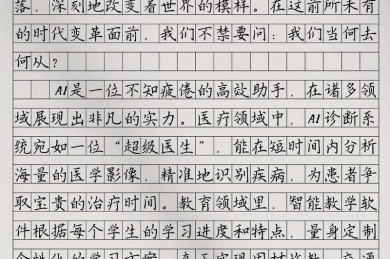 落，深刻地改变着世界的模样。在这前所未有
的时代变革面前，我们不禁要问：我们当何去
何从？
AI是一位不知疲倦的高效助手，在诸多领
域展现出非凡的实力。医疗领域中，AI诊断系
统宛如一位“超级医生”，能在短时间内分析
海量的医学影像，精准地识别疾病，为患者争
取宝贵的治疗时间。教育领域里，智能教学软
件根据每个学生的学习进度和特点，量身定制
个性化的学习方案，真正实现因材施教。交通